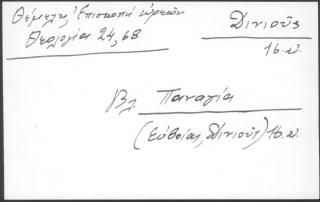 Θέμελης, Ἐπισκοπή Ὠρεῶν
Θεολογία 24, 68
Δινιούς
16 αἰ.
Βλ. Παναγία
(Εὐβοίας, Δινιούς) 16 αἰ.